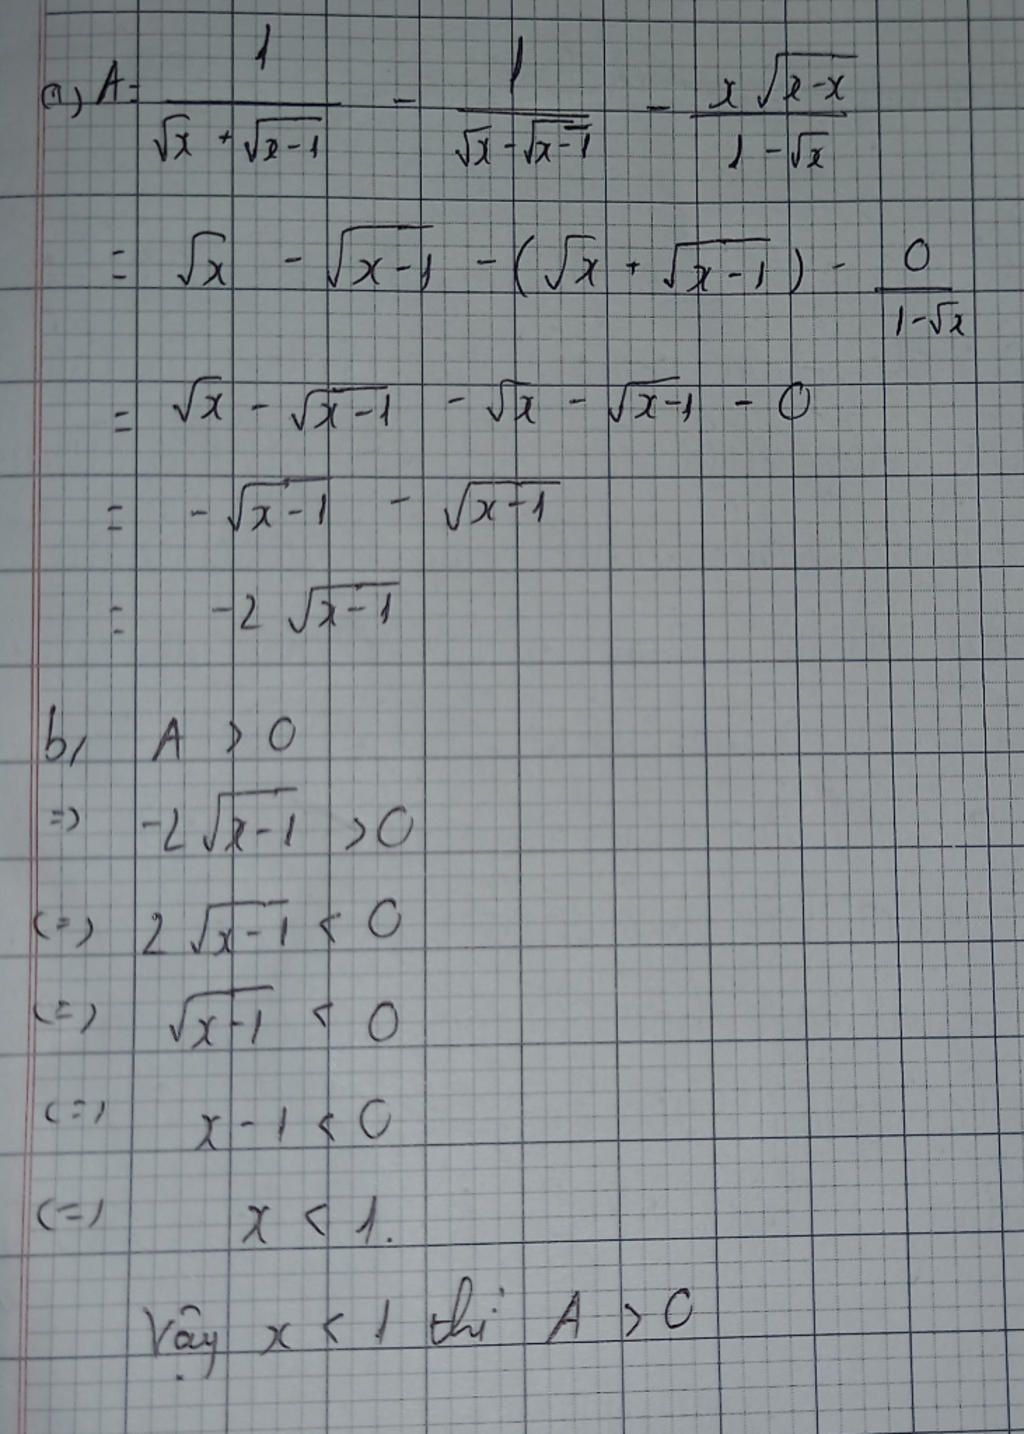 a, A = 1/(√x + √(x-1)) - 1/(√x - √(x-1)) - (x √(x-x))/(1 - √x)
= √x - √(x-1) - (√x + √(x-1)) - 0/(1-√x)
= √x - √(x-1) - √x - √(x-1) - 0
= -√(x-1) - √(x-1)
= -2 √(x-1)
b, A > 0
=> -2 √(x-1) > 0
(=) 2 √(x-1) < 0
(=) √(x-1) < 0
(=) x - 1 < 0
(=) x < 1.
Vậy x < 1 thì A > 0